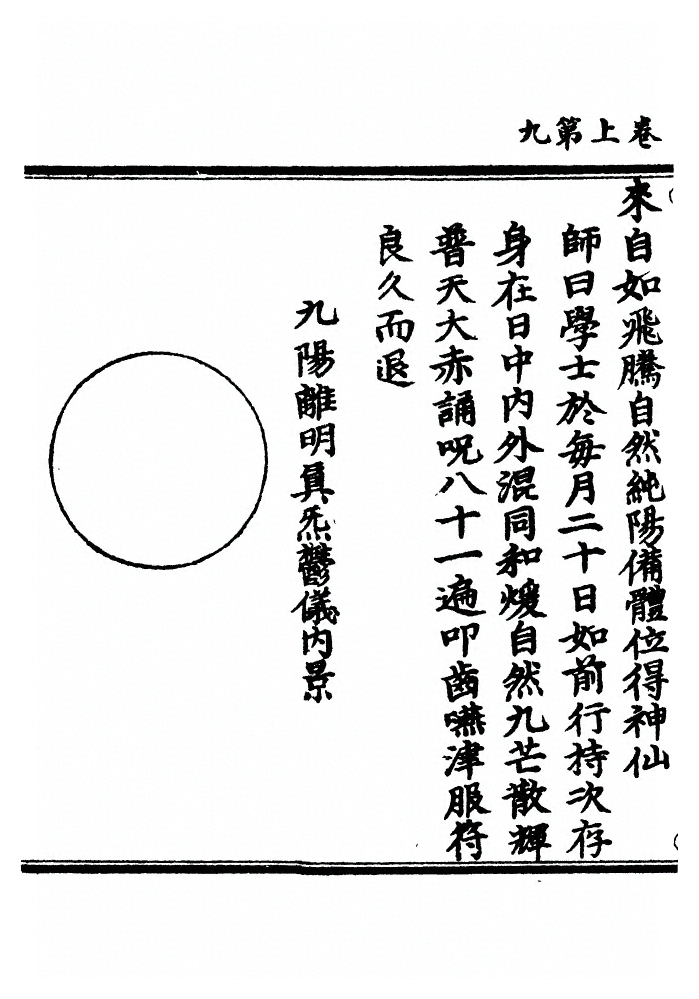 卷上第九
來自如飛騰自然純陽備體位得神仙
師曰學士於每月二十日如前行持次存
身在日中內外混同和煖自然九芒散輝
普天大赤誦呪八十一遍叩齒嚥津服符
良久而退
九陽離明真炁鬱儀內景